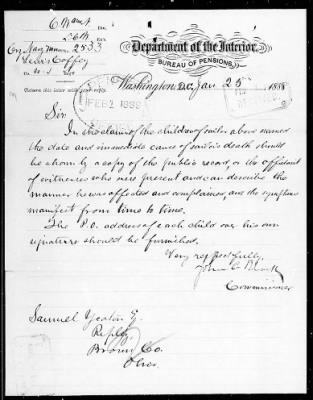 Department of the Interior,
BUREAU OF PENSIONS,
Lewis Coffey
Return this letter with your reply.
Washington, D.C., Jan 25 1888
FEB 2 1888
Sir:
In the claim of the children of soldier above named
the date and immediate cause of soldier's death should
be shown by a copy of the public record, or the affidavit
of witnesses who were present and can describe the
manner he was affected and complained, and the symptoms
manifest from time to time.
The P.O. address of each child over his own
signature should be furnished.
Very respectfully,
John C. Black
Commissioner
Samuel
Ripley
Brown Co.
Ohio.